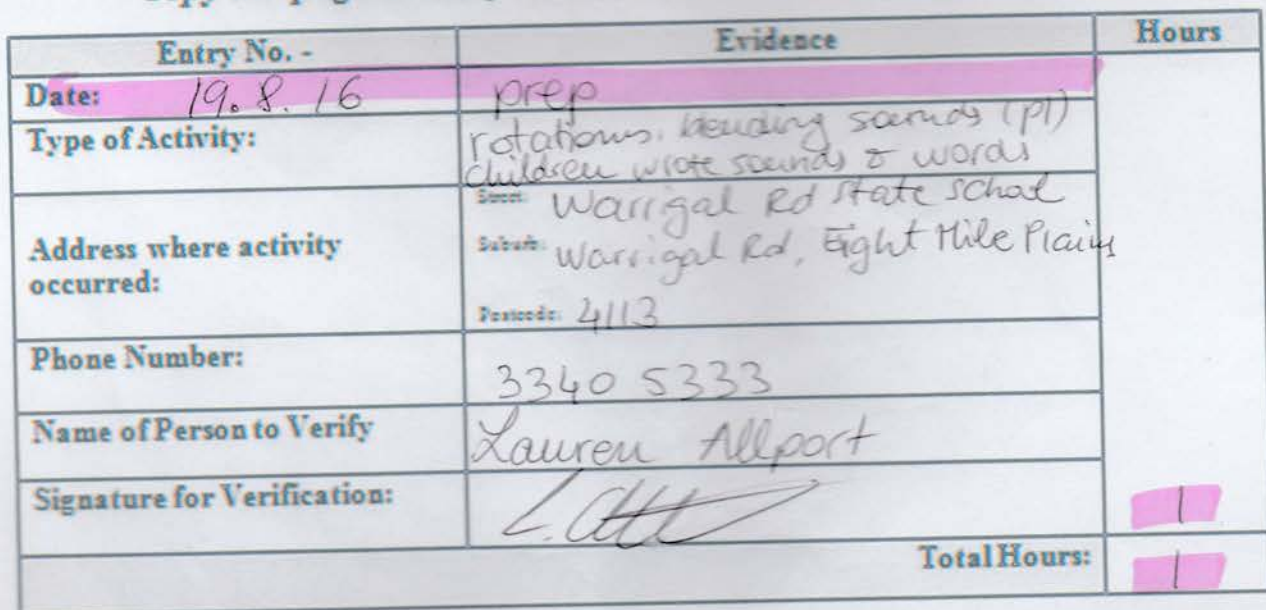 Entry No. - Evidence Hours
Date: 19.8.16 prep
Type of Activity: rotations. blending sounds (pl)
children wrote sounds & words
Address where activity occurred: Street: Warrigal Rd State School
Suburb: Warrigal Rd, Eight Mile Plains
Postcode: 4113
Phone Number: 3340 5333
Name of Person to Verify Lauren Allport
Signature for Verification: 1
Total Hours: 1